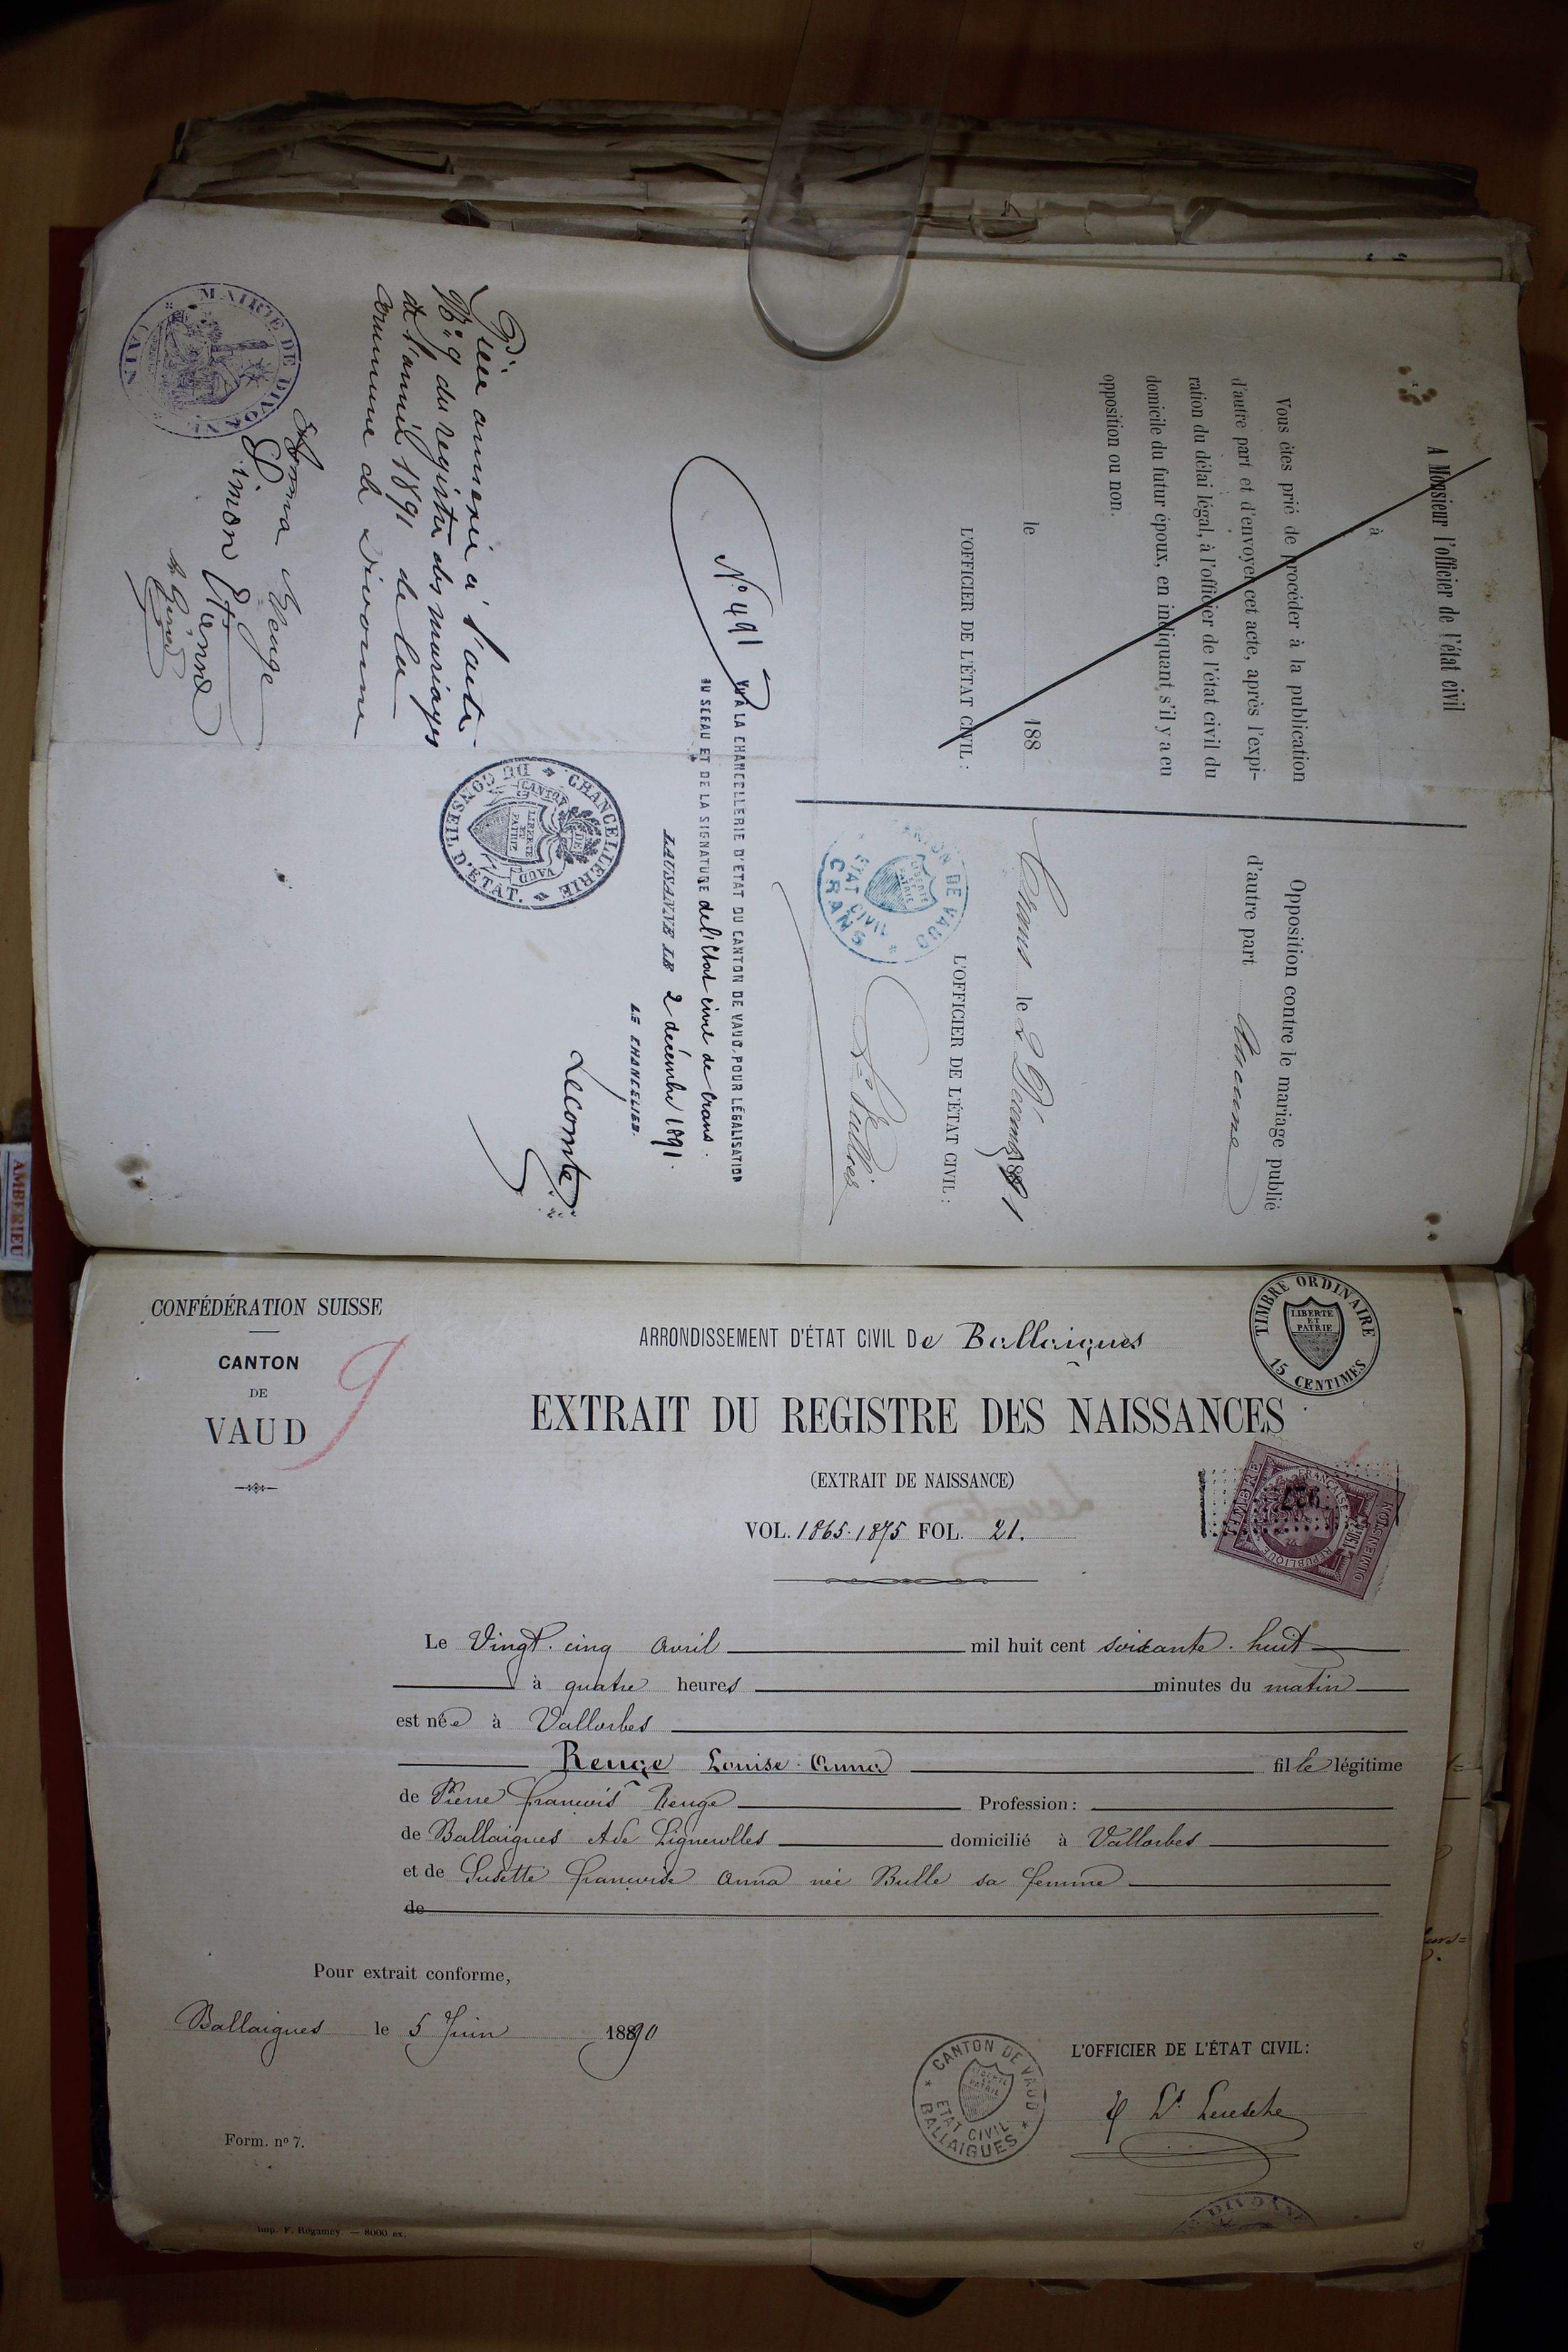 A Monsieur l'officier de l'état civil
à
Vous êtes prié de procéder à la publication
d'autre part et d'envoyer cet acte, après l'expi-
ration du délai légal, à l'officier de l'état civil du
domicile du futur époux, en indiquant s'il y a eu
opposition ou non.
le 188
L'OFFICIER DE L'ÉTAT CIVIL :
Opposition contre le mariage publié
d'autre part Aucune
Crans le 2 Décembre 1891
L'OFFICIER DE L'ÉTAT CIVIL :
CANTON DE VAUD
LIBERTÉ ET PATRIE
ÉTAT CIVIL
CRANS
No 491
VU À LA CHANCELLERIE D'ETAT DU CANTON DE VAUD, POUR LÉGALISATION
DU SCEAU ET DE LA SIGNATURE de l'Etat civil de Crans.
LAUSANNE LE 2 décembre 1891.
LE CHANCELIER.
Lecomte
CHANCELLERIE DU CONSEIL D'ÉTAT.
CANTON DE VAUD
LIBERTE ET PATRIE
Pièce annexée à l'acte
No 9 du registre des mariages
de l'année 1891 de la
commune de Divonne
Anna Renge
Simon Etienne
MAIRIE DE DIVONNE
(AIN)
AMBERIEU
CONFÉDÉRATION SUISSE
CANTON
DE
VAUD
9
ARRONDISSEMENT D'ÉTAT CIVIL De Ballaigues
TIMBRE ORDINAIRE
LIBERTE ET PATRIE
15 CENTIMES
EXTRAIT DU REGISTRE DES NAISSANCES
(EXTRAIT DE NAISSANCE)
VOL. 1865-1875 FOL. 21.
TIMBRE
DIMENSION
REPUBLIQUE FRANÇAISE
Le Vingt-cinq Avril mil huit cent soixante-huit
à quatre heures minutes du matin
est née à Vallorbes
Renge Louise-Anna fille légitime
de Pierre François Renge Profession :
de Ballaigues et de Lignerolles domicilié à Vallorbes
et de Susette Françoise Anna née Bulle sa femme
de
Pour extrait conforme,
Ballaigues le 5 Juin 1890
L'OFFICIER DE L'ÉTAT CIVIL :
CANTON DE VAUD
LIBERTE ET PATRIE
ETAT CIVIL
BALLAIGUES
Ls Leresche
Form. no 7.
DIVONNE
Imp. F. Regamey. — 8000 ex.